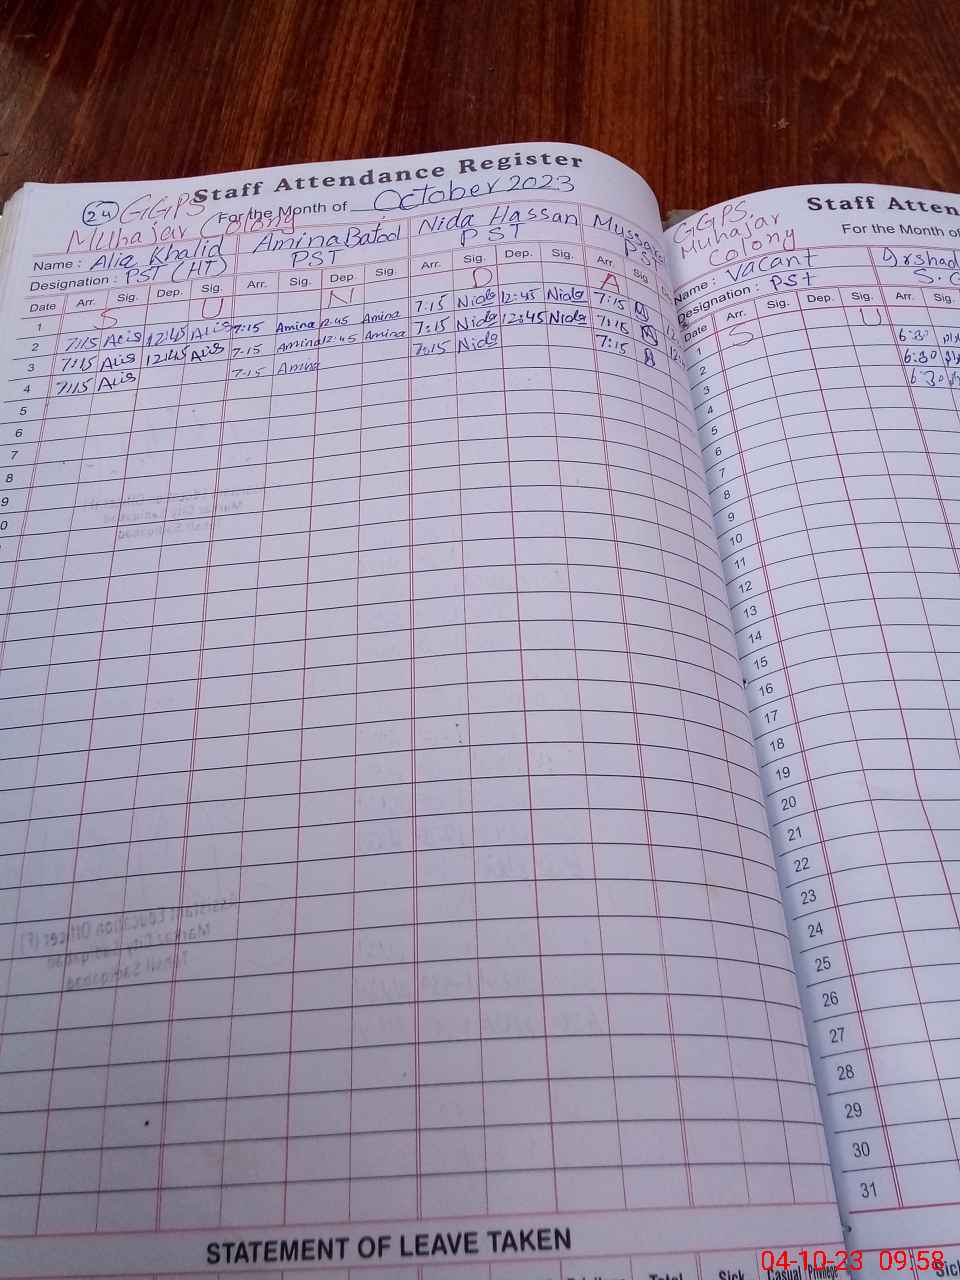 Staff Attendance Register
24 GGPS Muhajar Colony
For the Month of October 2023
Name : Alia Khalid Amina Batool Nida Hassan
Designation : PST (HT) PST PST PST
Date Arr. Sig. Dep. Sig. Arr. Sig. Dep. Sig. Arr. Sig. Dep. Sig. Arr. Sig
1 S U N D A
2 7:15 Alia 12:45 Alia 7:15 Amina 12:45 Amina 7:15 Nida 12:45 Nida 7:15
3 7:15 Alia 12:45 Alia 7:15 Amina 12:45 Amina 7:15 Nida 12:45 Nida 7:15
4 7:15 Alia 7:15 Amina 7:15 Nida 7:15
5
6
7
8
9
0
STATEMENT OF LEAVE TAKEN
Total Sick Casual Privilege
GGPS.
Muhajar
Colony
Staff Atten
For the Month of
Name : Vacant Arshad
Designation : PSt S.
Date Arr. Sig. Dep. Sig. Arr. Sig.
1 S U
2 6:30
3 6:30
4 6:30
5
6
7
8
9
10
11
12
13
14
15
16
17
18
19
20
21
22
23
24
25
26
27
28
29
30
31
04-10-23 09:58